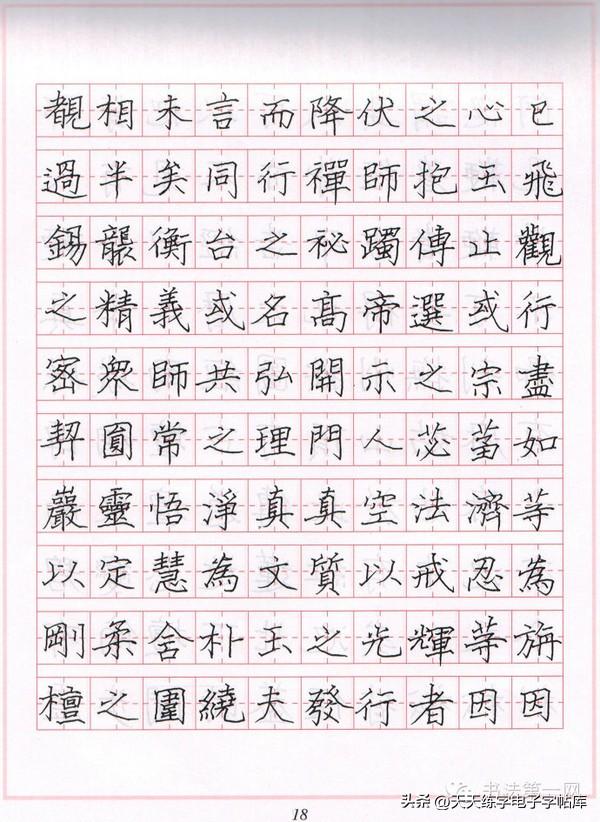 覩相未言而降伏之心已
過半矣同行禪師抱玉飛
錫襲衡台之祕躅傳止觀
之精義或名高帝選或行
密眾師共弘開示之宗盡
契圓常之理門人苾蒭如
巖靈悟淨真真空法濟等
以定慧為文質以戒忍為
剛柔含朴玉之光輝等旃
檀之圍繞夫發行者因因
书法第一网
头条 @天天练字电子字帖库
18